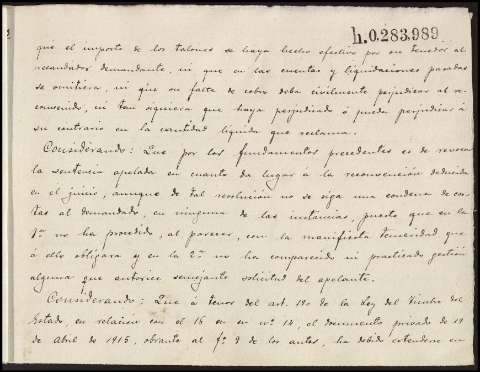 h.0.283.989
que el importe de los talones se haya hecho efectivo por su tenedor al
recaudador demandante, ni que en las cuentas y liquidaciones pasadas
se omitiera, ni que su falta de cobro deba civilmente perjudicar al re-
convenido, ni tan siquiera que haya perjudicado ó pueda perjudicar á
su contrario en la cantidad líquida que reclama.
Considerando: Que por los fundamentos precedentes es de revocar
la sentencia apelada en cuanto da lugar á la reconvención deducida
en el juicio, aunque de tal resolución no se siga una condena de cos-
tas al demandado, en ninguna de las instancias, puesto que en la
1ª no ha procedido, al parecer, con la manifiesta temeridad que
á ello obligara y en la 2ª no ha comparecido ni practicado gestión
alguna que autorice semejante solicitud del apelante.
Considerando: Que á tenor del art. 190 de la Ley del Timbre del
Estado, en relación con el 16 en su nº 14, el documento privado de 19
de Abril de 1915, obrante al fº 9 de los autos, ha debido extenderse en